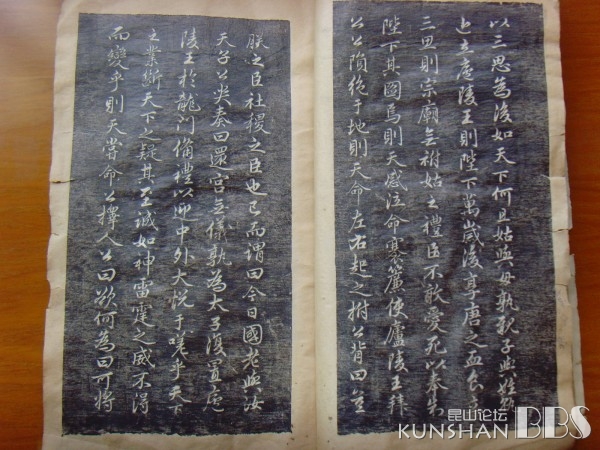 以三思為後如天下何且姑與母孰親子與姪孰
近立廬陵王則陛下萬歲後享唐之血食立
三思則宗廟无祔姑之禮臣不敢愛死以奉制
陛下其圖焉則天感泣命褰簾使廬陵王拜
公公隕絕于地則天命左右起之拊公背曰豈
朕之臣社稷之臣也已而謂曰今日國老與汝
天子公哭奏曰還宮无儀孰為太子復置廬
陵王於龍門備禮以迎中外大悅于嗟乎天下
之業斷天下之疑其至誠如神雷霆之威不得
而變乎則天嘗命公擇人公曰欲何為曰可將
昆山论坛
KUNSHAN BBS